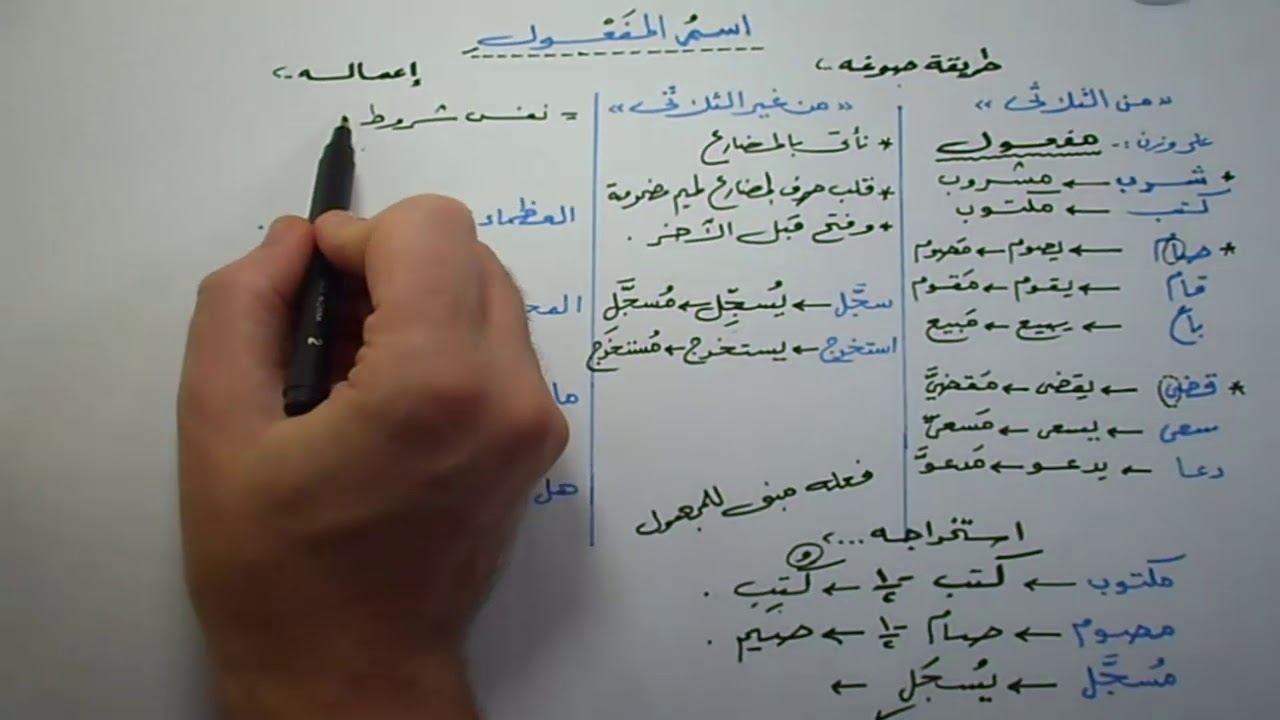 اسمُ المَفْعُول
طريقة صوغه
إعماله
«من الثلاثى»
على وزن :- مفعول
* شرب ← مشروب
كتب ← مكتوب
* صام ← يصوم ← مَصوم
قام ← يقوم ← مَقوم
باع ← يبيع ← مَبيع
* قضى ← يقضى ← مَقضيَّ
سعى ← يسعى ← مَسعىّ
دعا ← يدعو ← مَدعوَّ
«من غير الثلاثى»
* نأتى بالمضارع
* قلب حرف المضارع لميم مضمومة
* وفتح قبل الآخر .
سجَّل ← يُسجِّل ← مُسجَّل
استخرج ← يستخرج ← مُستخرَج
فعله مبنى للمجهول
= نفس شروط
العظماء
ما
هل
استخراجه ...
مكتوب ← كتب ← كُتِب .
مصوم ← صام ← صيم .
مُسجَّل ← يُسجَل ←